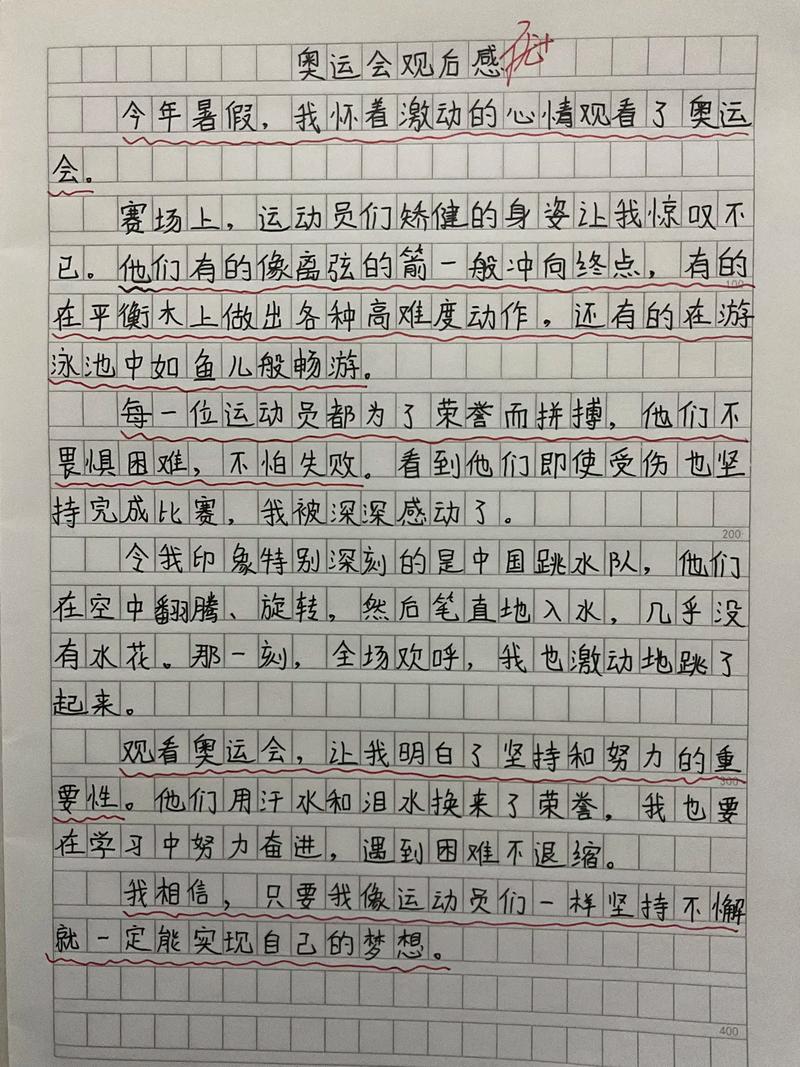 奥运会观后感
今年暑假，我怀着激动的心情观看了奥运
会。
赛场上，运动员们矫健的身姿让我惊叹不
已。他们有的像离弦的箭一般冲向终点，有的
100
在平衡木上做出各种高难度动作，还有的在游
泳池中如鱼儿般畅游。
每一位运动员都为了荣誉而拼搏，他们不
畏惧困难，不怕失败。看到他们即使受伤也坚
持完成比赛，我被深深感动了。
200
令我印象特别深刻的是中国跳水队，他们
在空中翻腾、旋转，然后笔直地入水，几乎没
有水花。那一刻，全场欢呼，我也激动地跳了
起来。
观看奥运会，让我明白了坚持和努力的重
300
要性。他们用汗水和泪水换来了荣誉，我也要
在学习中努力奋进，遇到困难不退缩。
我相信，只要我像运动员们一样坚持不懈
就一定能实现自己的梦想。
400